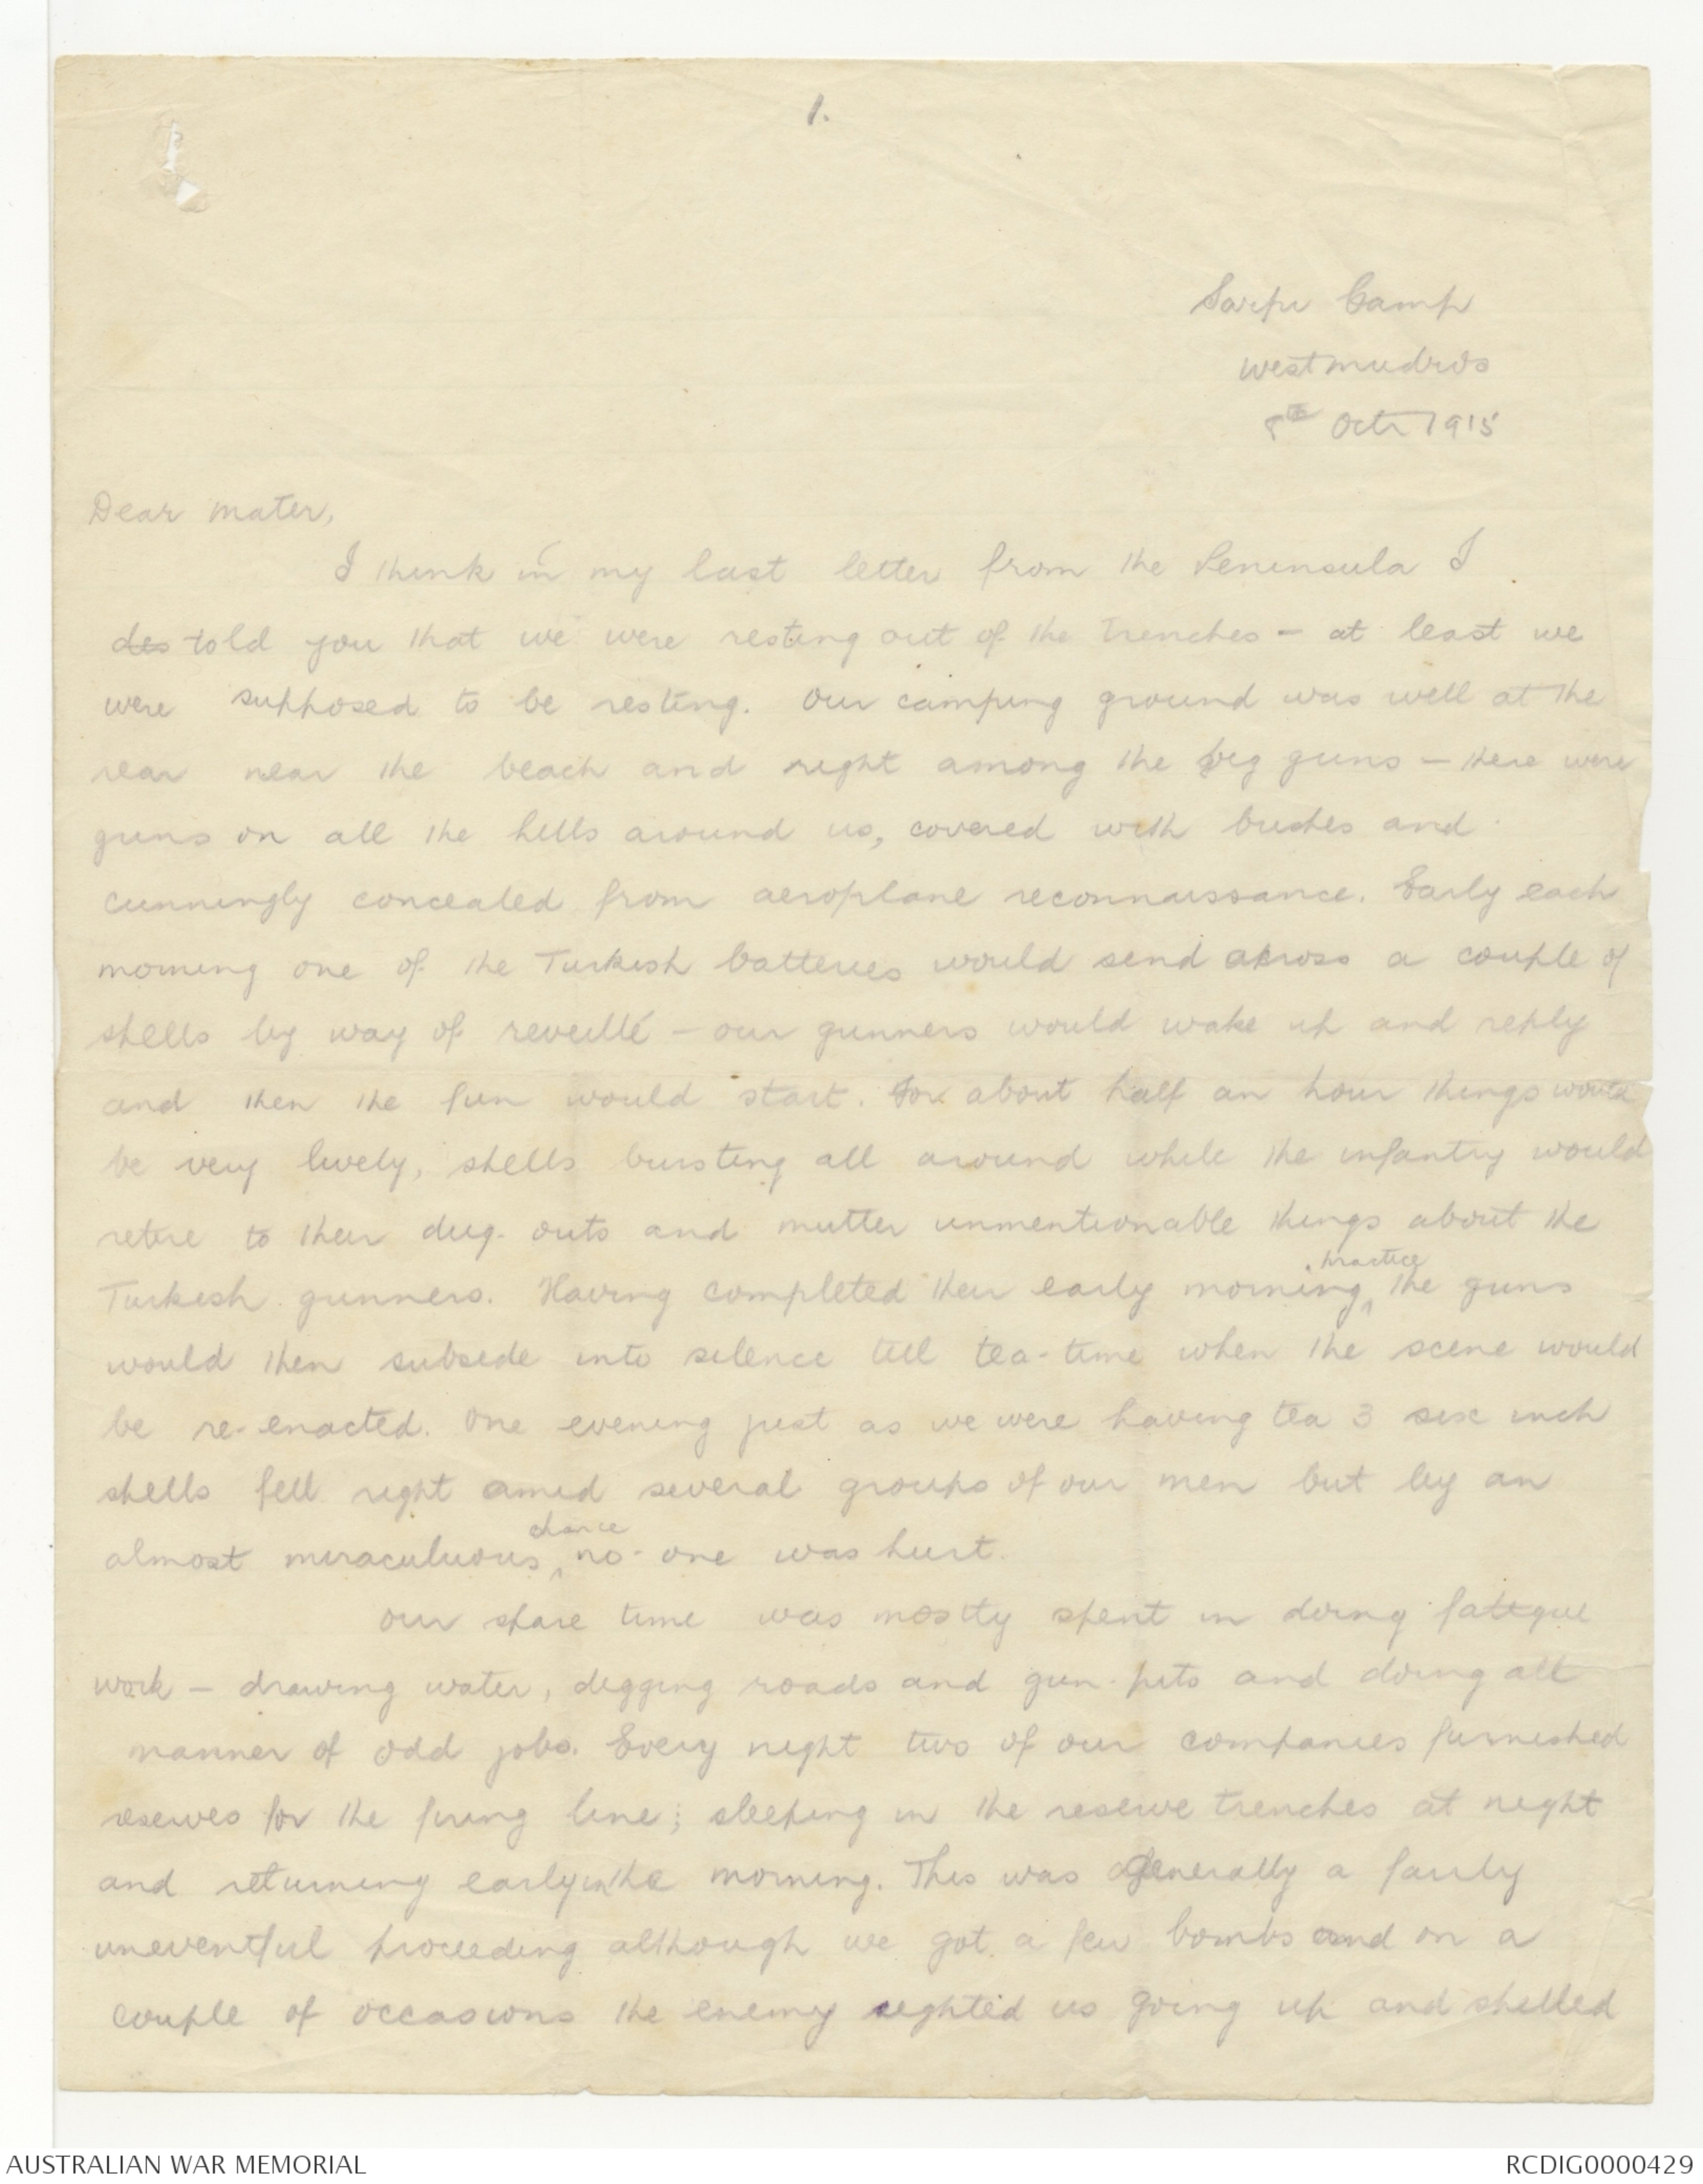 1.
Sarpi Camp
West Mudros
8th Oct 1915
Dear Mater,
I think in my last letter from the Peninsula I
des told you that we were resting out of the trenches - at least we
were supposed to be resting. Our camping ground was well at the
rear near the beach and right among the big guns - there were
guns on all the hills around us, covered with bushes and
cunningly concealed from aeroplane reconnaissance. Early each
morning one of the Turkish batteries would send across a couple of
shells by way of reveillé - our gunners would wake up and reply
and then the fun would start. For about half an hour things would
be very lively, shells bursting all around while the infantry would
retire to their dug-outs and mutter unmentionable things about the
Turkish gunners. Having completed their early morning practice the guns
would then subside into silence till tea-time when the scene would
be re-enacted. One evening just as we were having tea 3 six inch
shells fell right amid several groups of our men but by an
almost miraculuous chance no-one was hurt.
Our spare time was mostly spent in doing fatigue
work - drawing water, digging roads and gun-pits and doing all
manner of odd jobs. Every night two of our companies furnished
reserves for the firing line; sleeping in the reserve trenches at night
and returning early in the morning. This was generally a fairly
uneventful proceeding although we got a few bombs and on a
couple of occasions the enemy sighted us going up and shelled
AUSTRALIAN WAR MEMORIAL
RCDIG0000429